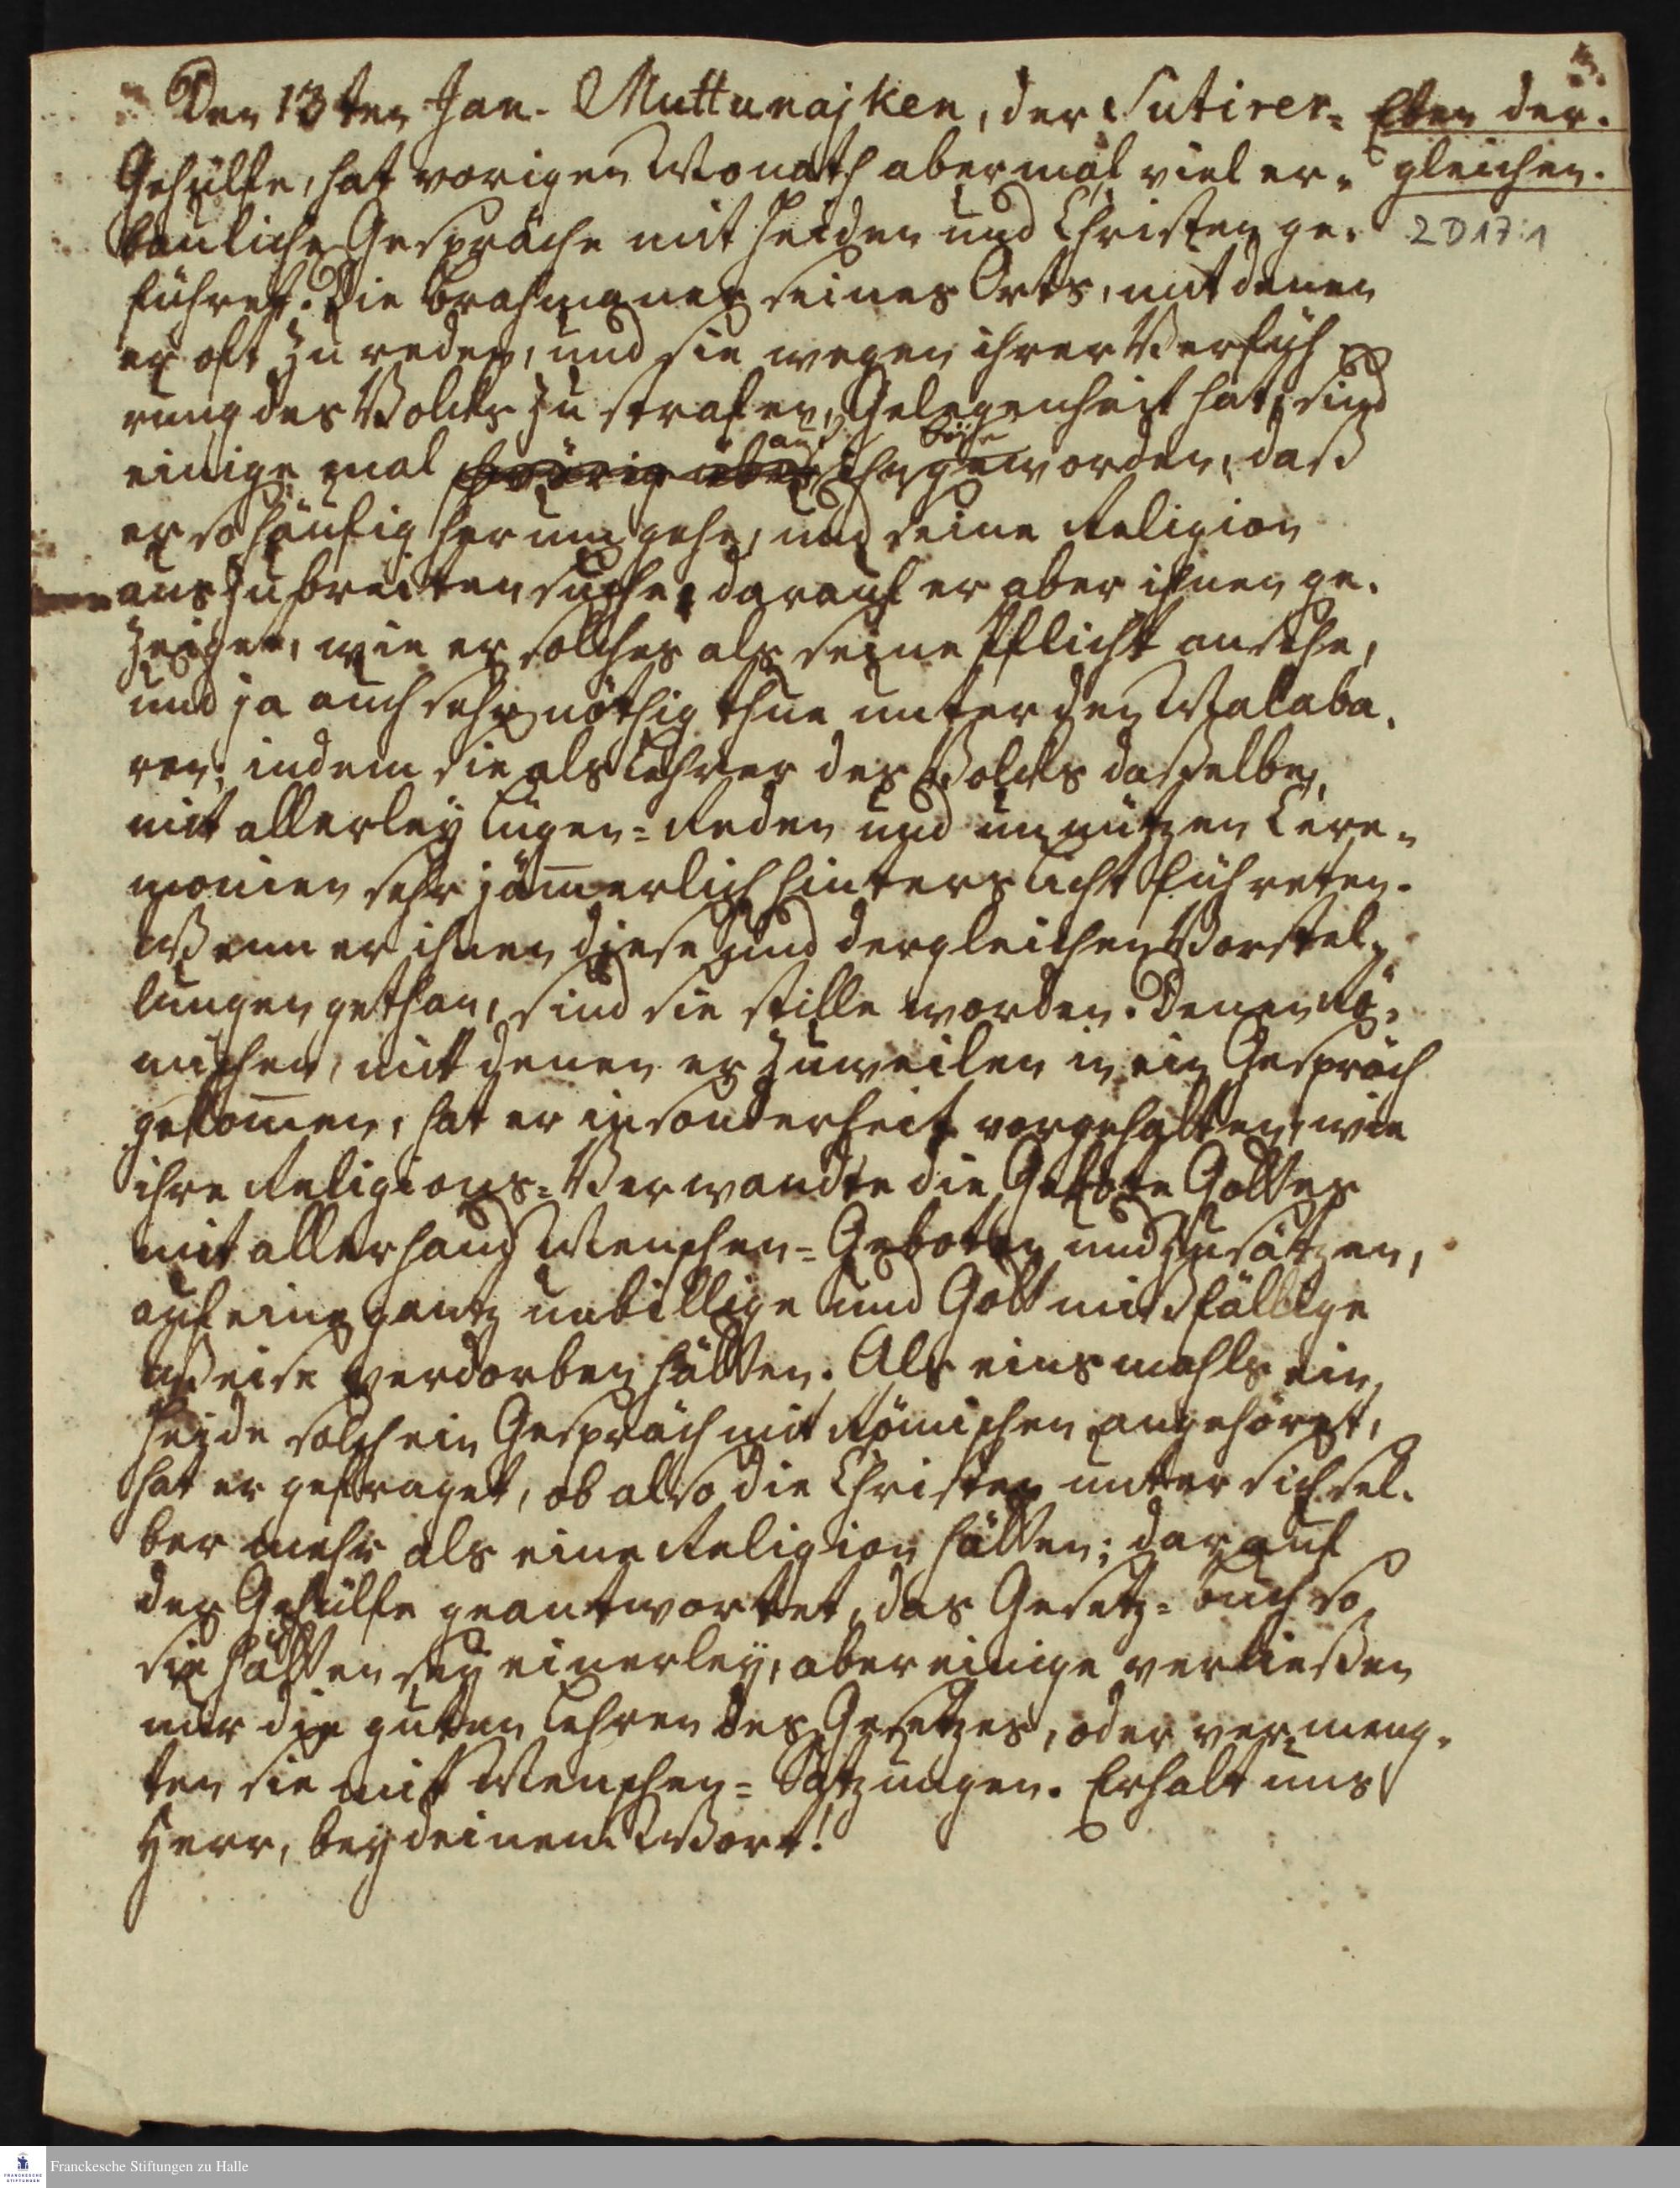 Den 13ten Jan. Muttunajken, der Sutirer-
Gehülfe, hat vorigen Monath abermal viel er-
bauliche Gespräche mit Heiden und Christen ge-
führet. Die Brahmaner seines Orts, mit denen
er oft zu reden, und sie wegen ihrer Verfüh
rung des Volcks zu strafen, Gelegenheit hat, sind
einige mal auf ihn böse geworden, daß
er so häufig herum gehe, und seine Religion
auszubreiten suche; darauf er aber ihnen ge-
zeiget, wie er solches als seine Pflicht ansehe,
und ja auch sehr nöthig thue unter den Malaba-
ren, indem sie als Lehrer des Volcks dasselbe
mit allerley Lügen-Reden und unnützen Cere-
monien sehr jämerlich hinters Licht führeten.
Wenn er ihnen diese und dergleichen Vorstel-
lungen gethan, sind sie stille worden. Denen Rö-
mischen, mit denen er zuweilen in ein Gespräch
gekomen, hat er insonderheit vorgehalten, wie
ihre Religions-Verwandte die Gebote Gottes
mit allerhand Menschen-Geboten und Zusätzen,
auf eine gantz unbillige und Gott mißfällige
Weise verdorben hätten. Als einsmahls ein
Heyde solch ein Gespräch mit Römischen angehöret,
hat er gefraget, ob also die Christen unter sich sel-
ber mehr als eine Religion hätten; darauf
der Gehülfe geantwortet, das Gesetz-Buch so
sie hätten sey einerley, aber einige verließen
nur die guten Lehren des Gesetzes, oder vermeng-
ten sie mit Menschen-Satzungen. Erhalt uns
Herr, bey deinem Wort!
Eben der-
gleichen.
2D17:1
Franckesche Stiftungen zu Halle